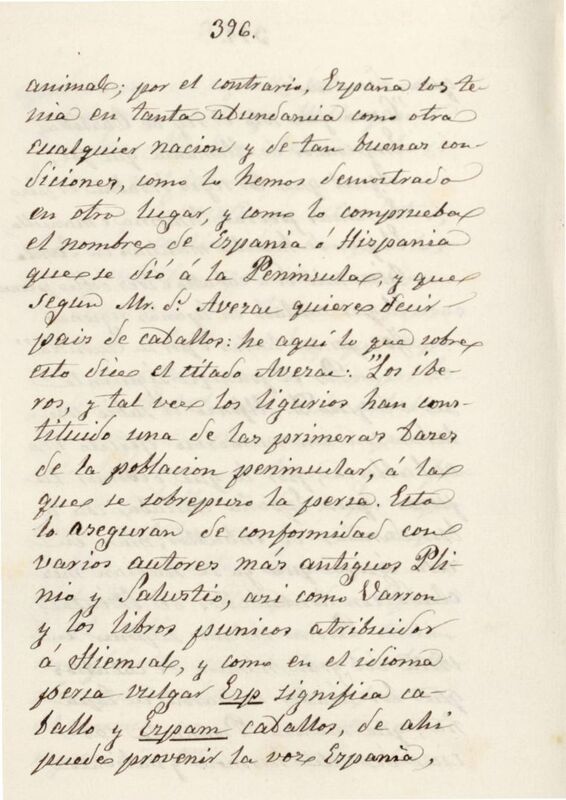 396.
animal; por el contrario, España los te-
nia en tanta abundancia como otra
cualquier nacion y de tan buenas con-
diciones, como lo hemos demostrado
en otro lugar, y como lo comprueba
el nombre de Espania ó Hispania
que se dió á la Peninsula, y que
segun Mr. d. Averac quiere decir
pais de caballos: he aqui lo que sobre
esto dice el citado Averac: "Los ibe-
ros, y tal vez los ligurios han cons-
tituido una de las primeras bases
de la poblacion peninsular, á la
que se sobrepuso la persa. Esto
lo aseguran de conformidad con
varios autores más antiguos Pli-
nio y Salustio, asi como Varron
y los libros punicos atribuidos
á Hiemsal, y como en el idioma
persa vulgar Esp significa ca-
ballo y Espam caballos, de ahi
puede provenir la voz Espania,